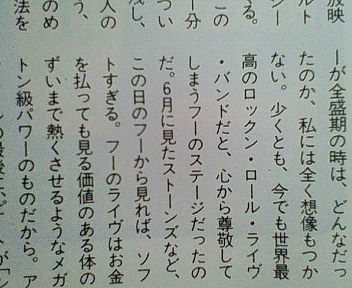 放映
ルト
シー
る。
この
一分
つい
残し、
人の
う、
のめ
法を
ーが全盛期の時は、どんなだっ
たのか、私には全く想像もつか
ない。少くとも、今でも世界最
高のロックン・ロール・ライヴ
・バンドだと、心から尊敬して
しまうフーのステージだったの
だ。6月に見たストーンズなど、
この日のフーから見れば、ソフ
トすぎる。フーのライヴはお金
を払っても見る価値のある体の
ずいまで熱くさせるようなメガ
トン級パワーのものだから。ア